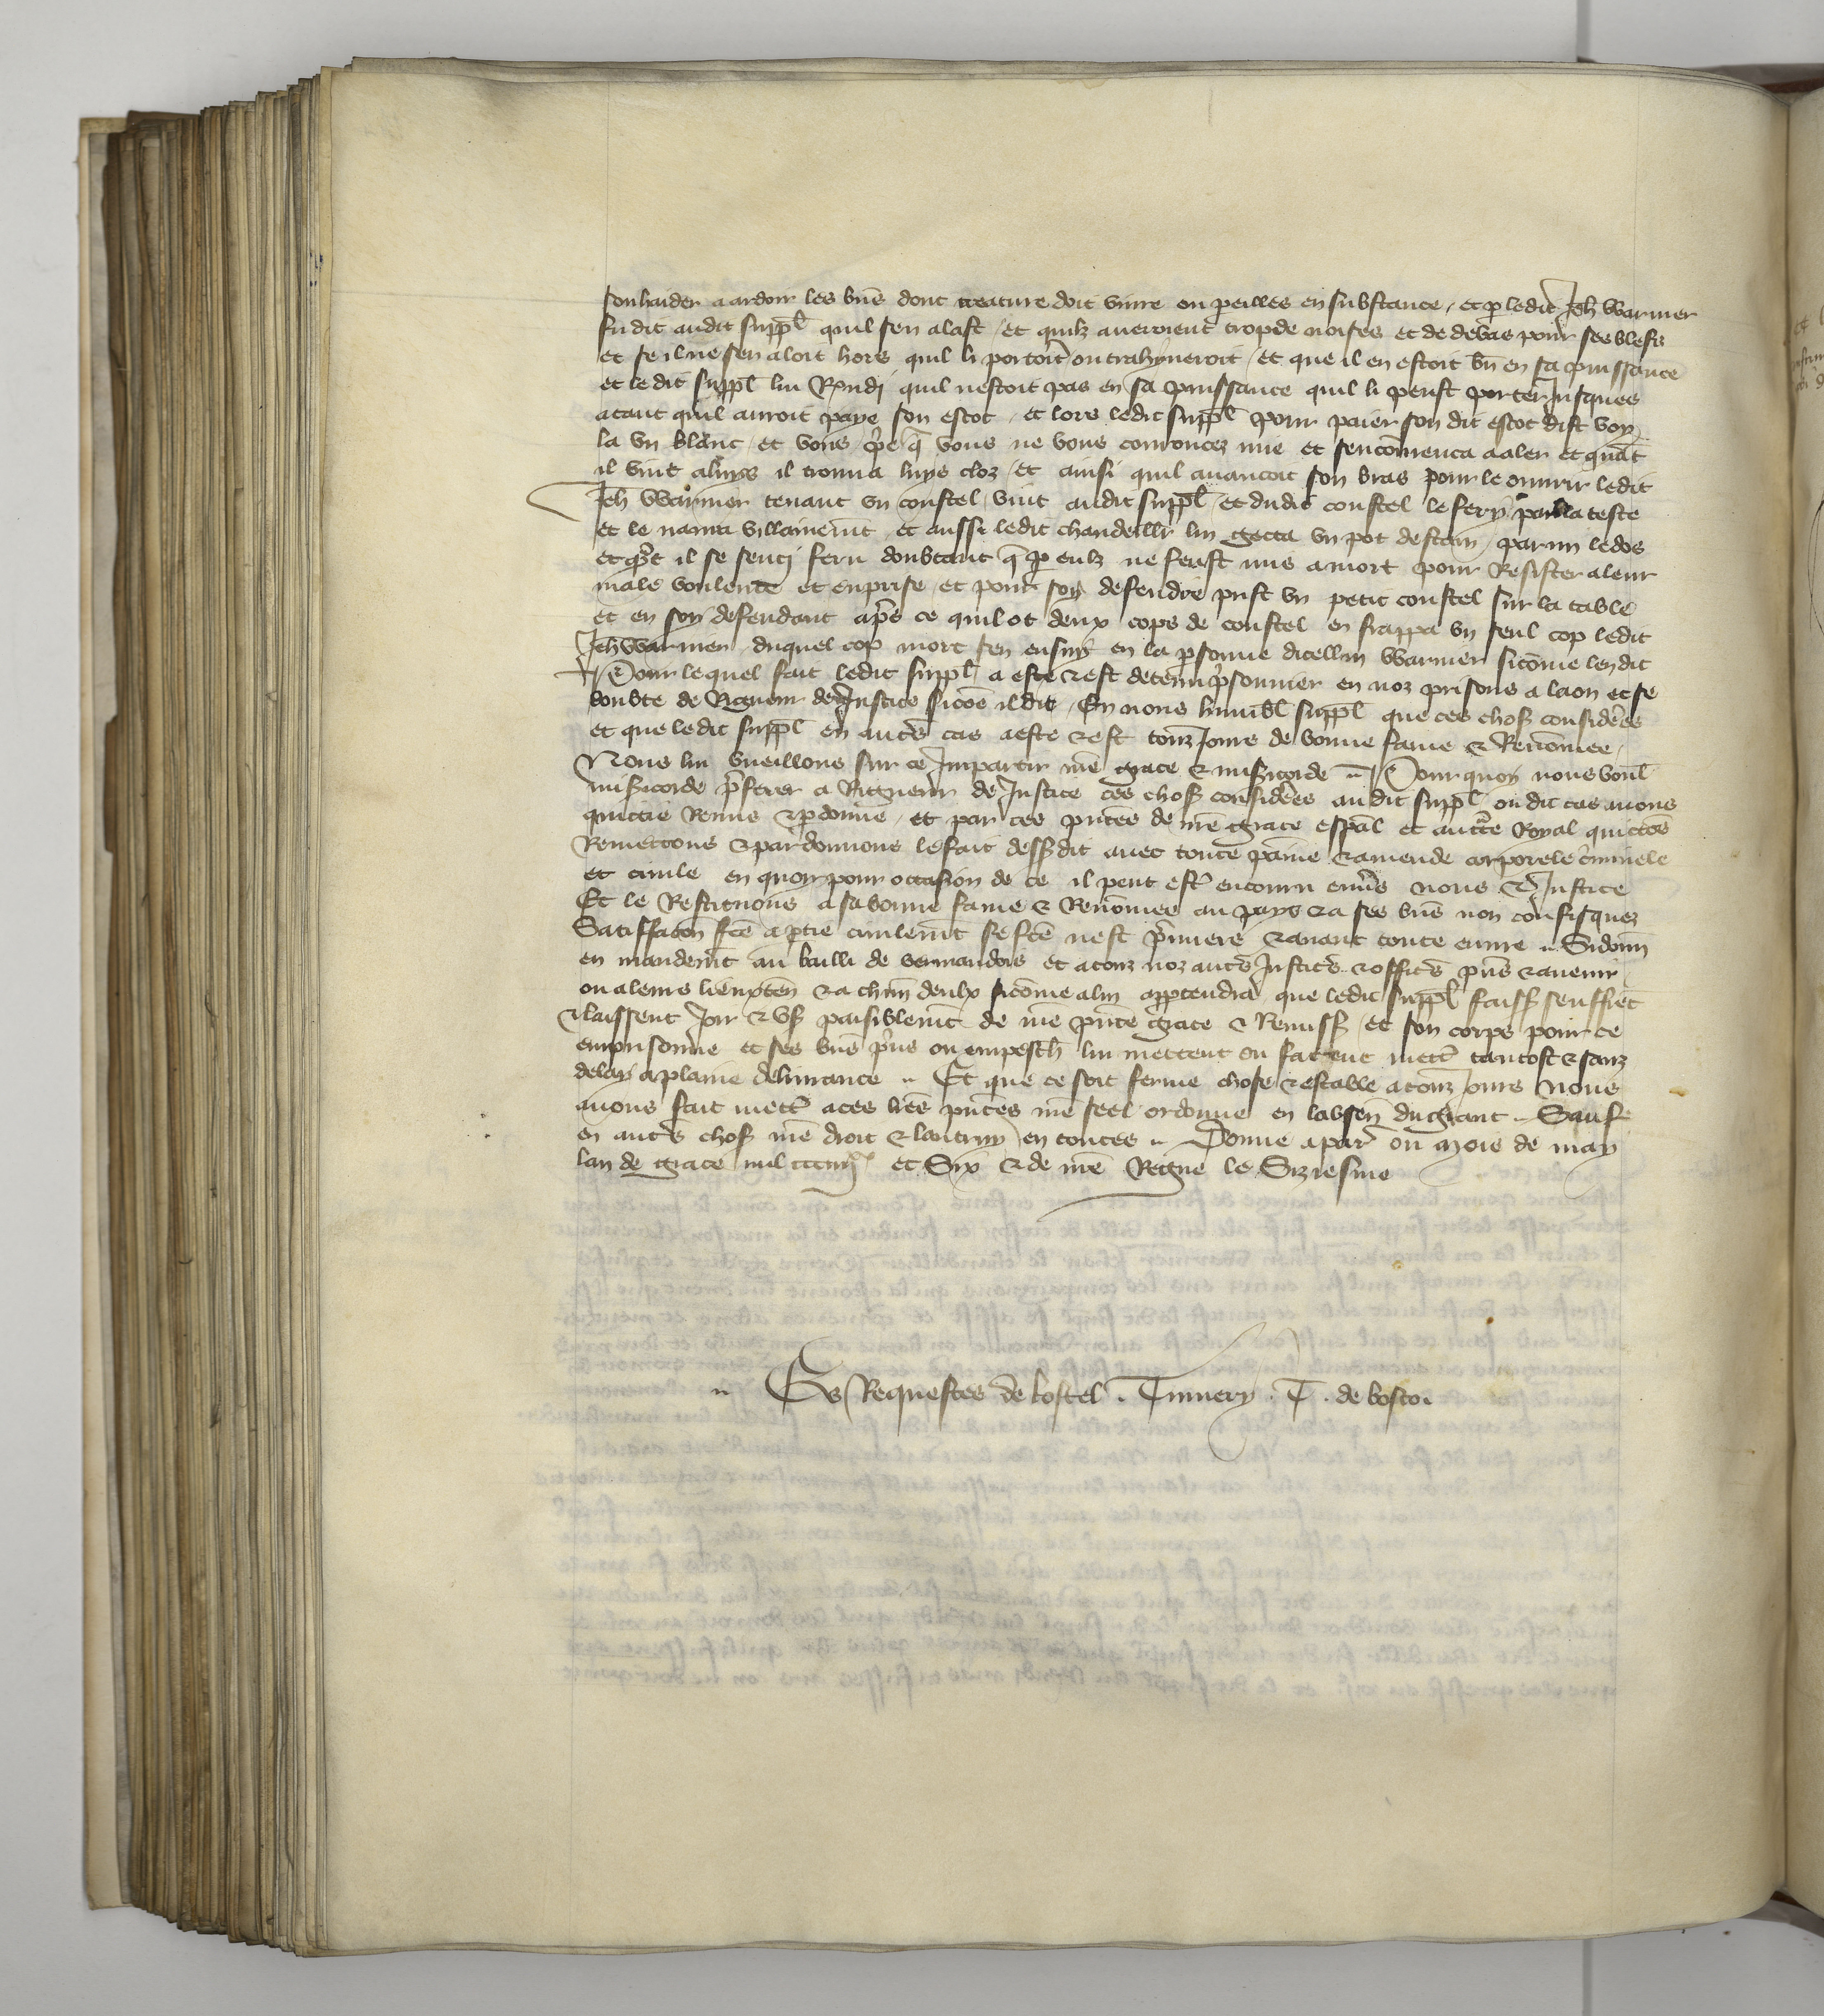 souhaider a ardoir les bn̄s dont creature doit vivre ou perilles en substance, et ꝑ ledit Jeh̄ Warnier
fu dit audit suppl̄ quil sen alast, et quilz averoient trop de noises et de debas pour ses blefs
et se il ne sen aloit hors quil li porteroit ou trahyneroit, et que il en estoit bn̄ en sa puissance
et ledit suppl̄ lui Rn̄di quil nestoit pas en sa puissance quil li peust porter Jusques
atant quil auroit paye son escot, et lors ledit suppl̄ pour paier son dit escot dist voy
la un blanc, et vous p̄e q̄ vous ne vous courouces mie et sen cōmenca a aler et quāt
il vint a luys il trouva luys clos, et ainsi quil avancoit son bras pour le ouvrir ledit
Jeh̄ Warnier tenant un coustel, vint audit suppl̄ et dudit coustel le fery par la teste
et le navra villainemt̄, et aussi ledit chandeillr̄ lui gecta un pot destain parmi le dos
et qn̄t il se senti feru doubtant q̄ ꝑ eulz ne feust mis a mort, pour Resister a leur
male voulente et emprise, et pour soy defendre prist un petit coustel sur la table
et en soy defendant ap̄s ce quil ot deux cops de coustel en frappa un seul cop ledit
Jeh̄ Warnier, duquel cop mort sen ensuy en la ꝑsonne dicellui Warnier sicōme len dit
Pour lequel fait ledit suppl̄ a este & est detenu p̄sonnier en noz prisons a laon et se
doubte de Rigueur de Justice sicōe il dit, En nous humbl̄ suppl̄ que ces chos̄ considerees
et que ledit suppl̄ en aut̄s cas a este & est touz Jours de bonne fame & Renōmee,
Nous lui vueillons sur ce Impartir nr̄e grace & mis̄icorde. Pour quoy nous voul̄
mis̄icorde p̄ferer a Rigueur de Justice ces chos̄ considerees audit suppl̄ ou dit cas avons
quictie Remis & ꝑdonne, et par ces pn̄tes de nr̄e grace esp̄al et auct̄te Royal quictōs
Remettons & pardonnons le fait dess̄dit avec toute paine & amende corporele c̄minele
et civile en quoy pour occasion de ce il peut est̄ encouru env̄s nous & Justice
Et le Restituons a sa bonne fame & Renōmee au pays & a ses bn̄s non confisquez
Satisfacōn fc̄e a ꝑtie civilemt̄ se fc̄e nest p̄miere & avant toute euvre. Si donn̄
en mandemt̄ au bailli de vermandois et a touz noz aut̄s Justic̄s & offic̄s pn̄s & avenir
ou a leurs lieuxten̄ & a chūn deulx sicōme a lui apꝑtendra, que ledit suppl̄ faiss̄ seuffrēt
& laissent Joir & us̄ paisiblemt̄ de nr̄e pn̄te grace & Remiss̄, et son corps pour ce
emprisonne et ses bn̄s p̄ns ou empesch̄ lui mettent ou facent mett̄ tantost & sanz
delay a plaine delivrance. Et que ce soit ferme chose & estable a touz Jours Nous
avons fait mett̄ a ces lr̄es pn̄tes nr̄e seel ordonne en labsen̄ du grant. Sauf
en aut̄s chos̄ nr̄e droit & lautruy en toutes. Donne a par̄ ou mois de may
lan de grace mil ccciiijxx et Six & de nr̄e Regne le Siziesme
Es Requestes de lostel. Tinnery. T. de bosco.